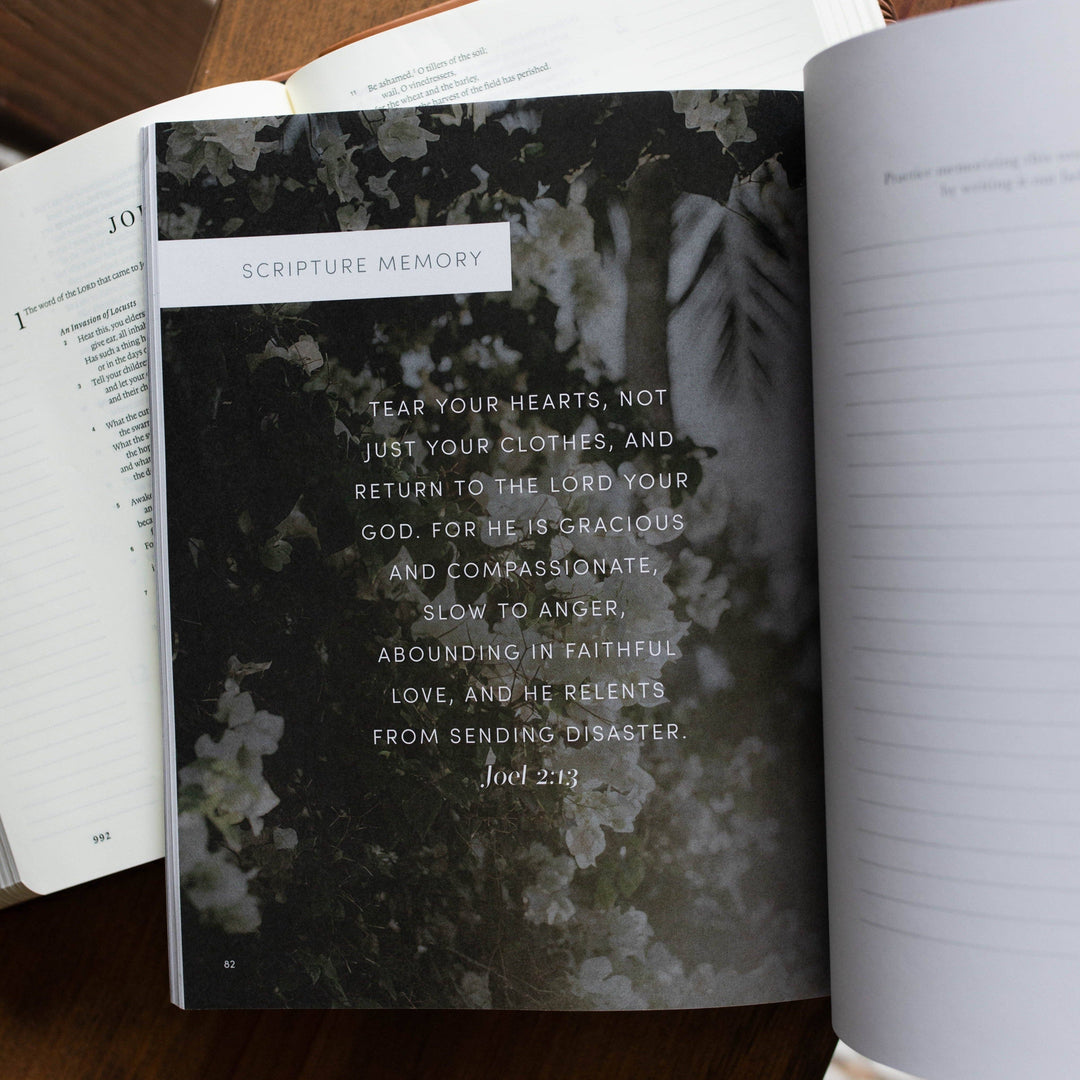 Be ashamed, O tillers of the soil;
wail, O vinedressers,
for the wheat and the barley,
the harvest of the field has perished.
11
JO
1 The word of the LORD that came to J
An Invasion of Locusts
2 Hear this, you elders
give ear, all inhab
Has such a thing h
or in the days o
3 Tell your childre
and let your
and their ch
4 What the cut
the swar
What the s
the hop
and what
the d
5 Awake
an
beca
6 Fo
7
992
SCRIPTURE MEMORY
TEAR YOUR HEARTS, NOT
JUST YOUR CLOTHES, AND
RETURN TO THE LORD YOUR
GOD. FOR HE IS GRACIOUS
AND COMPASSIONATE,
SLOW TO ANGER,
ABOUNDING IN FAITHFUL
LOVE, AND HE RELENTS
FROM SENDING DISASTER.
Joel 2:13
82
Practice memorizing this
by writing it out